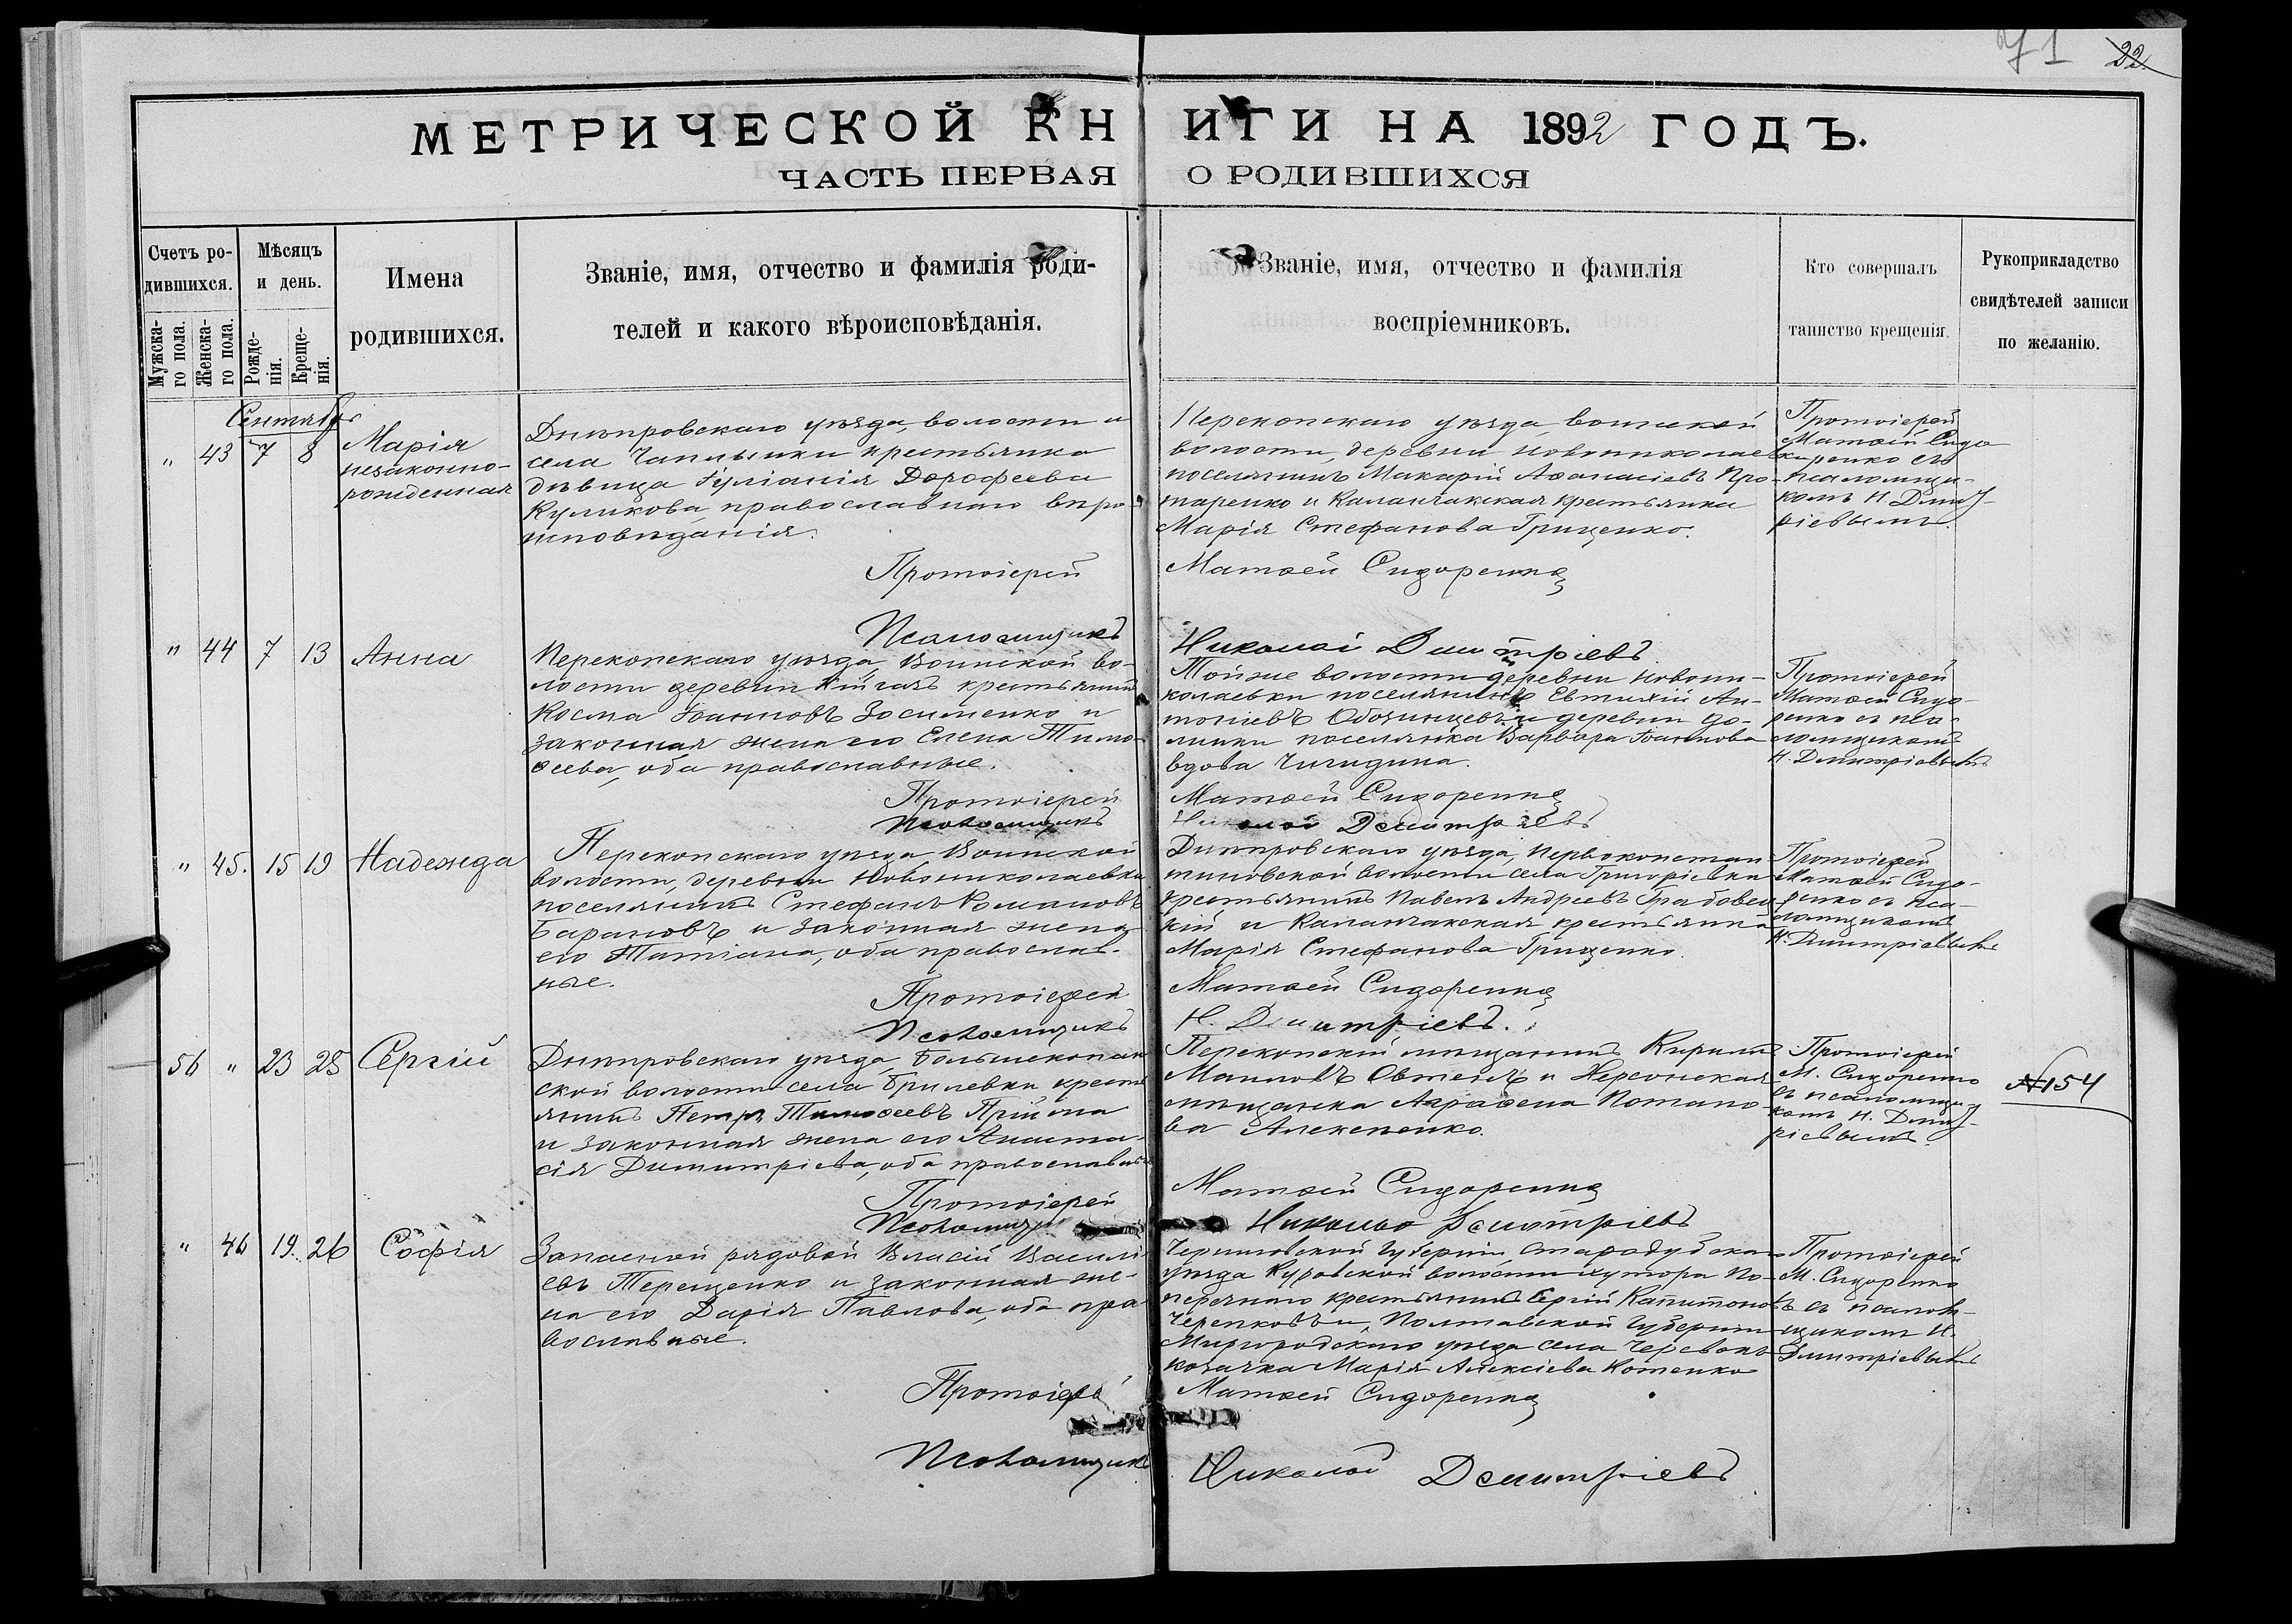 71 22
МЕТРИЧЕСКОЙ КНИГИ НА 1892 ГОДЪ.
ЧАСТЬ ПЕРВАЯ О РОДИВШИХСЯ
Счетъ ро-
дившихся.
Мужска-
го пола.
Женска-
го пола.
Мѣсяцъ
и день.
Рожде-
нія.
Креще-
нія.
Имена
родившихся.
Званіе, имя, отчество и фамилія роди-
телей и какого вѣроисповѣданія.
Званіе, имя, отчество и фамилія
воспріемниковъ.
Кто совершалъ
таинство крещенія.
Рукоприкладство
свидѣтелей записи
по желанію.
Сентябрь
" 43 7 8
Марія
незаконно-
рожденная
Днѣпровскаго уѣзда, волости и
села Чаплынки крестьянка
дѣвица Іуліанія Дорофеева
Куликова, православнаго вѣро-
исповѣданія.
Перекопскаго уѣзда, воинской
волости, деревни Новониколаев
поселянинъ Макарій Аѳанасіевъ Про-
таренко и Каланчакская крестьянка
Марія Стефанова Гриценко.
Протоіерей
Матѳей Сидо
ренко съ
псаломщи-
комъ Н. Димит-
ріевымъ.
Протоіерей Матѳей Сидоренко
Псаломщикъ Николай Димитріевъ
" 44 7 13 Анна
Перекопскаго уѣзда, Воинской во-
лости деревни крестьянинъ
Косма Іоанновъ Зосименко и
законная жена его Елена Тимо-
ѳеева, оба православные.
Тойже волости деревни Новони-
колаевки поселянинъ Евтихій Ан-
тоніевъ и деревни До-
линки поселянка Варвара Іоаннова
вдова Чигидина.
Протоіерей
Матѳей Сидо-
ренко съ пса-
ломщикомъ
Н. Димитріевымъ
Протоіерей Матѳей Сидоренко
Псаломщикъ Николай Димитріевъ
" 45. 15 19 Надежда
Перекопскаго уѣзда Воинской
волости, деревни Новониколаевки
поселянинъ Стефанъ Романовъ
Барановъ и законная жена
его Татіана, оба православ-
ные.
Днѣпровскаго уѣзда, Первоконстан
тиновской волости села Григоріевки
крестьянинъ Павелъ Андреевъ Грабовец
кій и Каланчакская крестьянка
Марія Стефанова Гриценко.
Протоіерей
Матѳей Сидо-
ренко съ пса-
ломщикомъ
Н. Димитріевымъ
Протоіерей Матѳей Сидоренко
Псаломщикъ Н. Димитріевъ.
56 " 23 25 Сергій
Днѣпровскаго уѣзда, Большекопан
ской волости села Брилевки кресть
янинъ Петръ Тимоѳеевъ Прійма
и законная жена его Анаста-
сія Димитріева, оба православные
Перекопскій мѣщанинъ Кириллъ
Маиловъ и Херсонская
мѣщанка Потапо-
ва Алексѣенко.
Протоіерей
М. Сидоренко
съ псаломщи-
комъ Н. Димит-
ріевымъ
№154
Протоіерей Матѳей Сидоренко
Псаломщикъ Николай Димитріевъ
" 46 19. 26 Софія
Запасной рядовой Власій Василі
евъ Терещенко и законная же-
на его Дарія Павлова, оба пра
вославные.
Черниговской Губерніи, Стародубскаго
уѣзда Куровской волости хутора По-
перечнаго крестьянинъ Сергій Капитоновъ
Черепковъ и Полтавской Губерніи
Миргородскаго уѣзда села
козачка Марія Алексіева Котенко
Протоіерей
М. Сидоренко
съ псалом-
щикомъ Н.
Димитріевымъ
Протоіерей Матѳей Сидоренко
Псаломщикъ Николай Димитріевъ